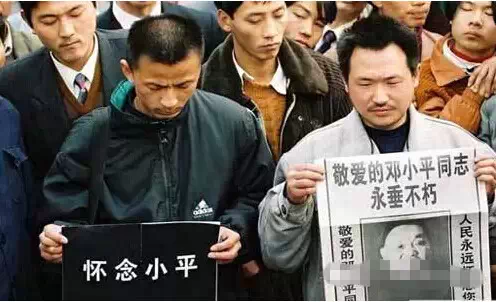 adidas
怀念小平
敬爱的邓小平同志
永垂不朽
敬爱的邓小平同
人民永远
您